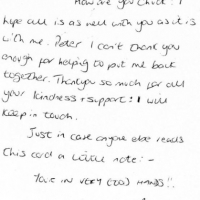 How are you Chuck? I
hope all is as well with you as it is
with me. Peter I can't thank you
enough for helping to put me back
together. Thankyou so much for all
your kindness + support! I will
keep in touch.
Just in case anyone else reads
this card a little note:-
YOU'RE IN VERY GOOD HANDS!!